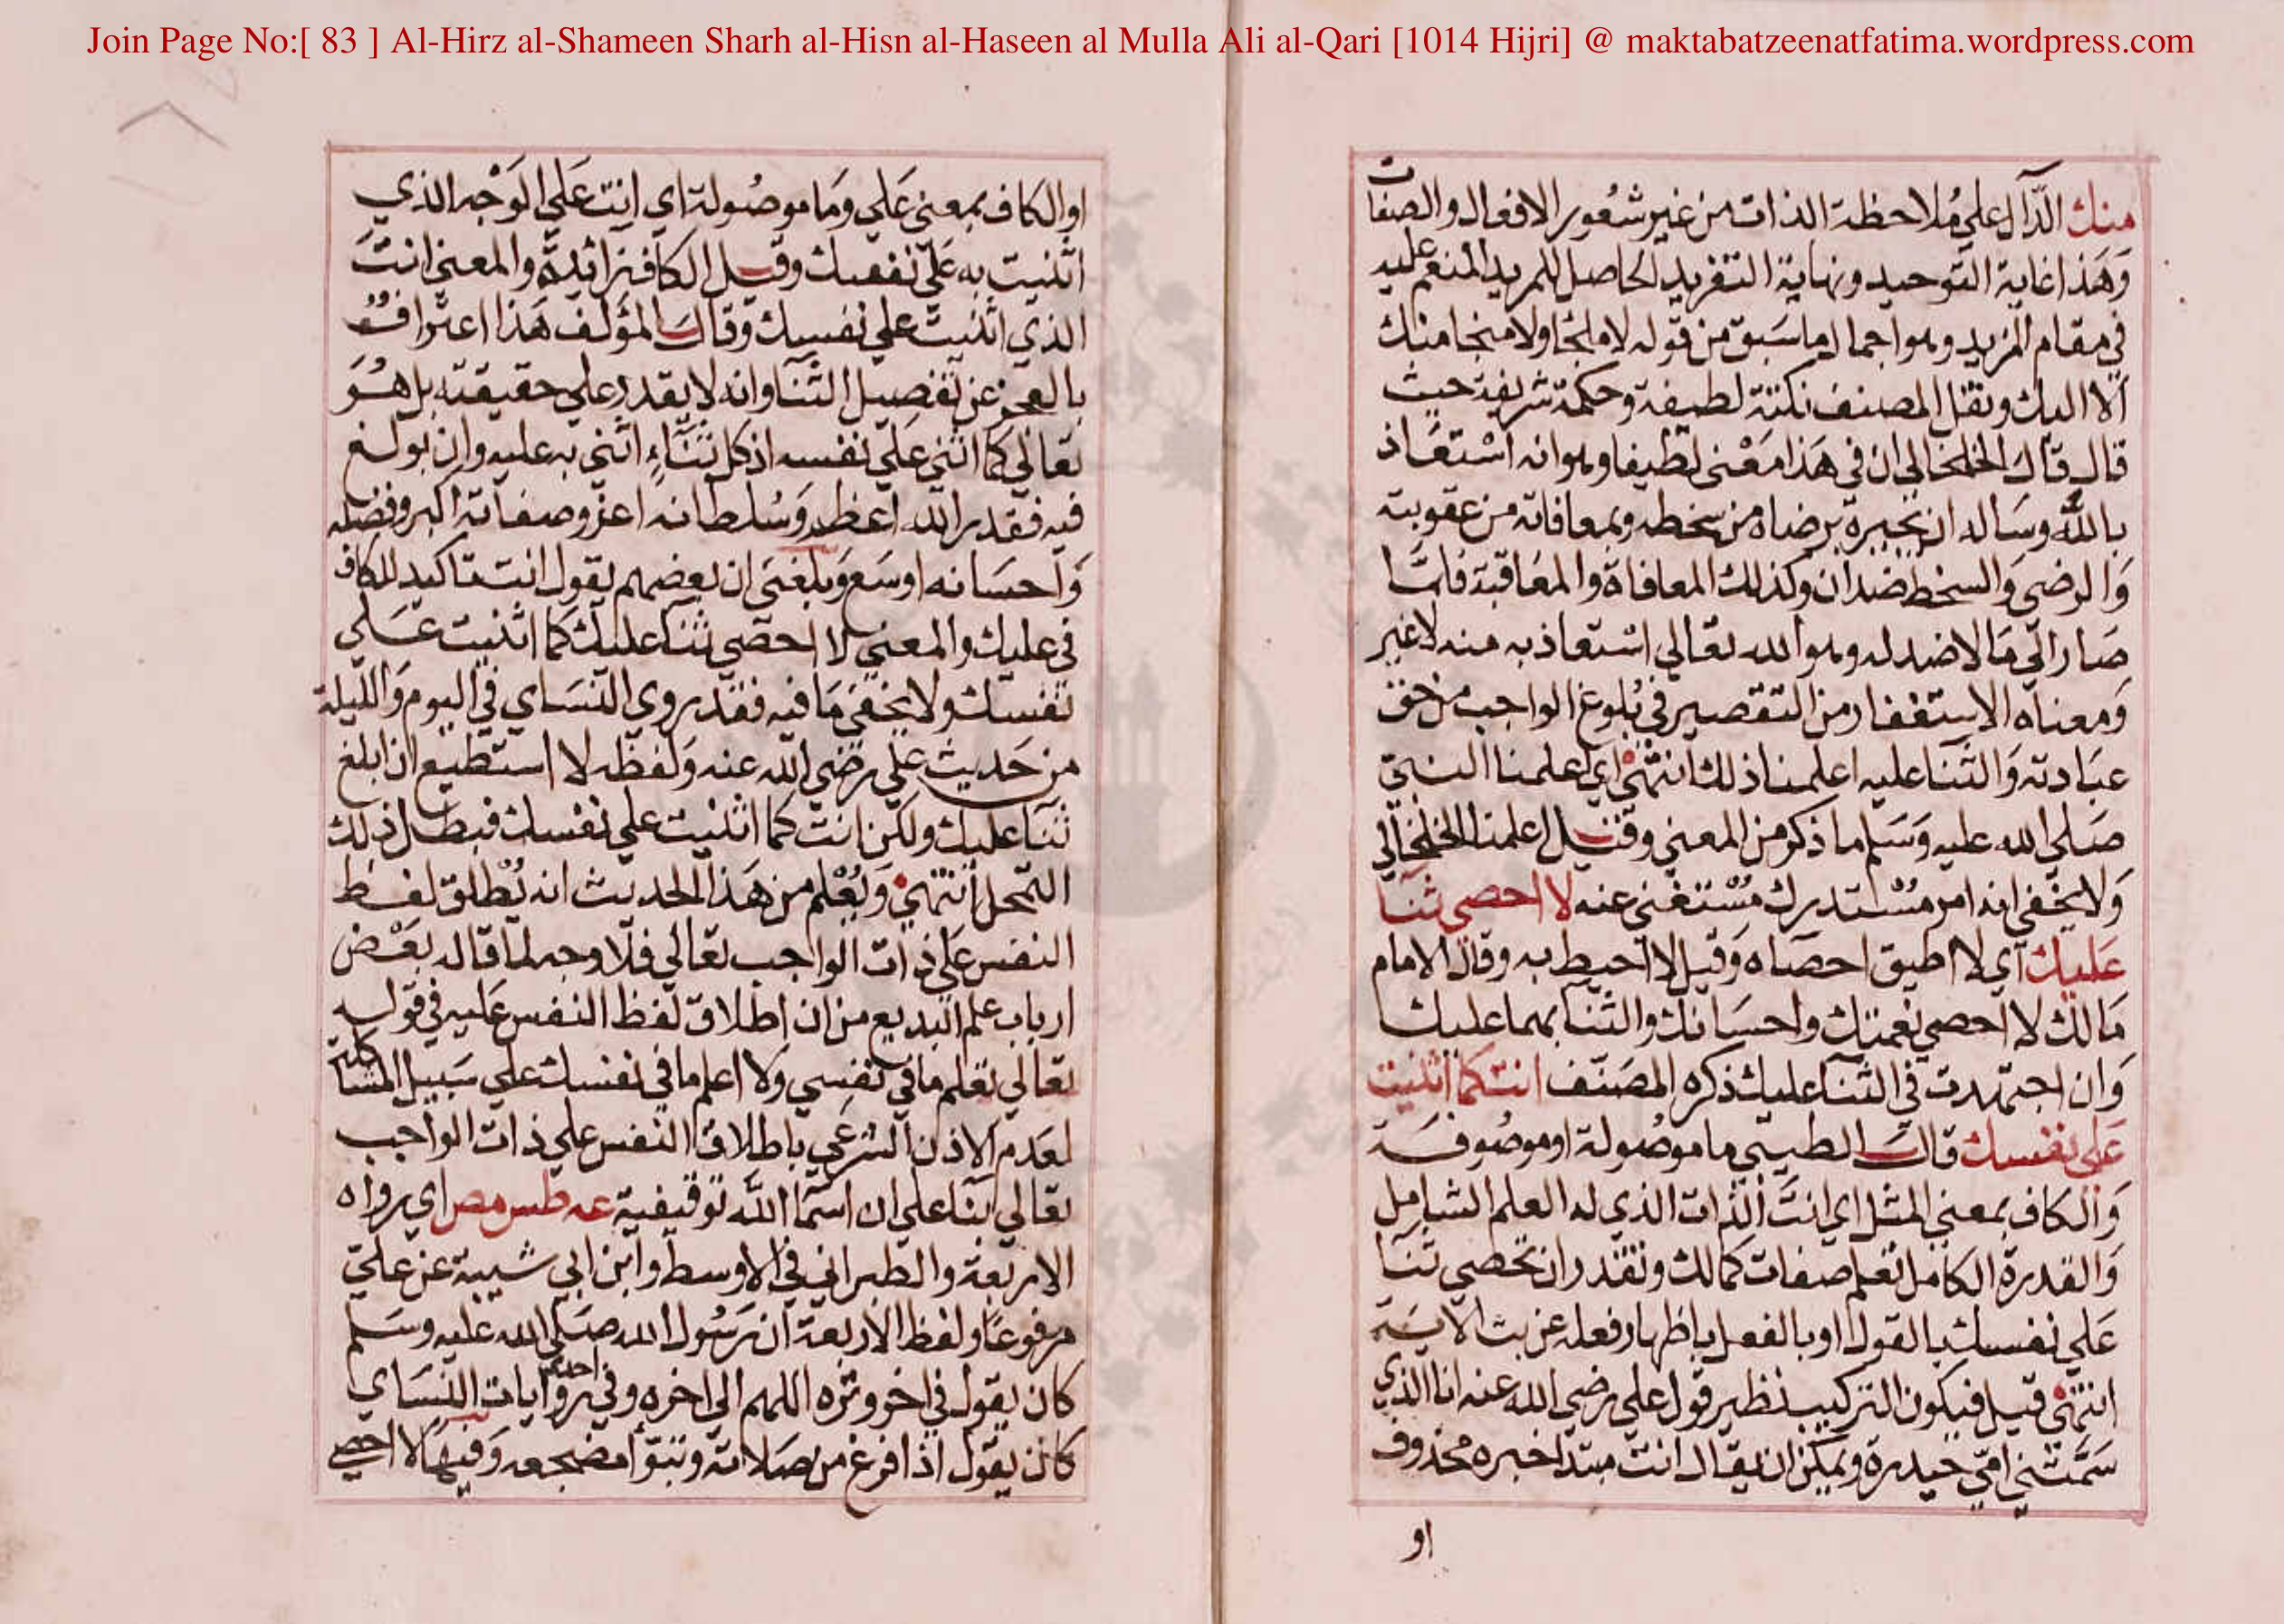 Join Page No:[ 83 ] Al-Hirz al-Shameen Sharh al-Hisn al-Haseen al Mulla Ali al-Qari [1014 Hijri] @ maktabatzeenatfatima.wordpress.com
منك الدال على ملاحظة الذات من غير شعور الافعال والصفات
وهذا غاية التوحيد ونهاية التفريد الحاصل للمريد المنعم عليه
في مقام المزيد وهو اجمال ما سبق من قوله لا ملجا ولا منجا منك
الا اليك ونقل المصنف نكتة لطيفة وحكمة شريفة حيث
قال قال الخلخالي ان في هذا معنى لطيفا وهو انه استعاذ
بالله وساله ان يجيره برضاه من سخطه وبمعافاته من عقوبته
والرضى والسخط ضدان وكذلك المعافاة والمعاقبة فلما
صار الى ما لا ضد له وهو الله تعالي استعاذ به منه لا غير
ومعناه الاستغفار من التقصير في بلوغ الواجب من حق
عبادته والثنا عليه اعلمنا ذلك انتهى اي اعلمنا النبي
صلى الله عليه وسلم ما ذكر من المعني وقيل اعلمنا الخلخالي
ولا يخفى انه امر مستدرك مستغنى عنه لا احصي ثنا
عليك اي لا اطيق احصاه وقيل لا احيط به وقال الامام
مالك لا احصي نعمتك واحسانك والثنا بهما عليك
وان اجتهدت في الثنا عليك ذكره المصنف انت كما اثنيت
على نفسك قال الطيبي ما موصولة او موصوفة
والكاف بمعني المثل اي انت الذات الذي له العلم الشامل
والقدرة الكامل تعلم صفات كمالك وتقدر ان تحصي ثنا
علي نفسك بالقول او بالفعل باظهار فعله عن بث الاية
انتهى قيل فيكون التركيب نظير قول علي رضي الله عنه انا الذي
سمتني امي حيدرة ويمكن ان يقال انت مبتدا خبره محذوف
او
او الكاف بمعنى علي وما موصولة اي انت علي الوجه الذي
اثنيت به على نفسك وقيل الكاف زائدة والمعنى انت
الذي اثنيت علي نفسك وقال المؤلف هذا اعتراف
بالعجز عن تفصيل الثنا وانه لا يقدر علي حقيقته بل هو
تعالي كما اثنى على نفسه اذ كل ثناء اثنى به عليه وان بولغ
فيه فقدر الله اعظم وسلطانه اعز وصفاته اكبر وفضله
واحسانه اوسع وبلغني ان بعضهم يقول انت تاكيد للكاف
في عليك والمعني لا احصي ثنا عليك كما اثنيت على
نفسك ولا يخفى ما فيه فقد روى النساي في اليوم والليلة
من حديث علي رضي الله عنه ولفظه لا استطيع ان ابلغ
ثنا عليك ولكن انت كما اثنيت علي نفسك فبطل ذلك
التمحل انتهى ويعلم من هذا الحديث انه يطلق لفظ
النفس على ذات الواجب تعالي فلا وجه لما قاله بعض
ارباب علم البديع من ان اطلاق لفظ النفس عليه في قوله
تعالي تعلم ما في نفسي ولا اعلم ما في نفسك علي سبيل المشاكلة
لعدم الاذن الشرعي باطلاق النفس علي ذات الواجب
تعالي بنا علي ان اسما الله توقيفية عه طس مص اي رواه
الاربعة والطبراني في الاوسط وابن ابي شيبة عن علي
مرفوعا ولفظ الاربعة ان رسول الله صلى الله عليه وسلم
كان يقول في اخر وتره اللهم الى اخره وفي احدى روايات النساي
كان يقول اذا فرغ من صلاته وتبوأ مضجعه وفيها لا احصي